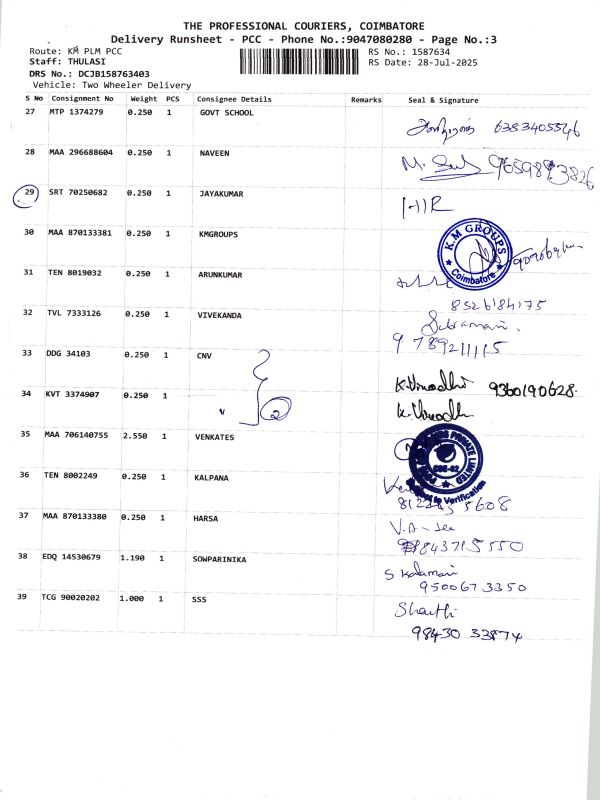 THE PROFESSIONAL COURIERS, COIMBATORE
Delivery Runsheet - PCC - Phone No.:9047080280 - Page No.:3
Route: KM PLM PCC
RS No.: 1587634
Staff: THULASI
RS Date: 28-Jul-2025
DRS No.: DCJB158763403
Vehicle: Two Wheeler Delivery
S No Consignment No Weight PCS Consignee Details Remarks Seal & Signature
27 MTP 1374279 0.250 1 GOVT SCHOOL
6383405546
28 MAA 296688604 0.250 1 NAVEEN
29 SRT 70250682 0.250 1 JAYAKUMAR
30 MAA 870133381 0.250 1 KMGROUPS
K.M GROUPS
Coimbatore
31 TEN 8019032 0.250 1 ARUNKUMAR
8526184175
32 TVL 7333126 0.250 1 VIVEKANDA
9789211115
33 DDG 34103 0.250 1 CNV
K.Vinodhi 9360190628.
34 KVT 3374907 0.250 1 " 2
K.Vinodh
35 MAA 706140755 2.550 1 VENKATES
PRIVATE LIMITED
CBE-02
Subject to Verification
36 TEN 8002249 0.250 1 KALPANA
37 MAA 870133380 0.250 1 HARSA
9843715550
38 EDQ 14530679 1.190 1 SOWPARINIKA
S Kalamani
9500673350
39 TCG 90020202 1.000 1 SSS
Shanthi
98430 33874